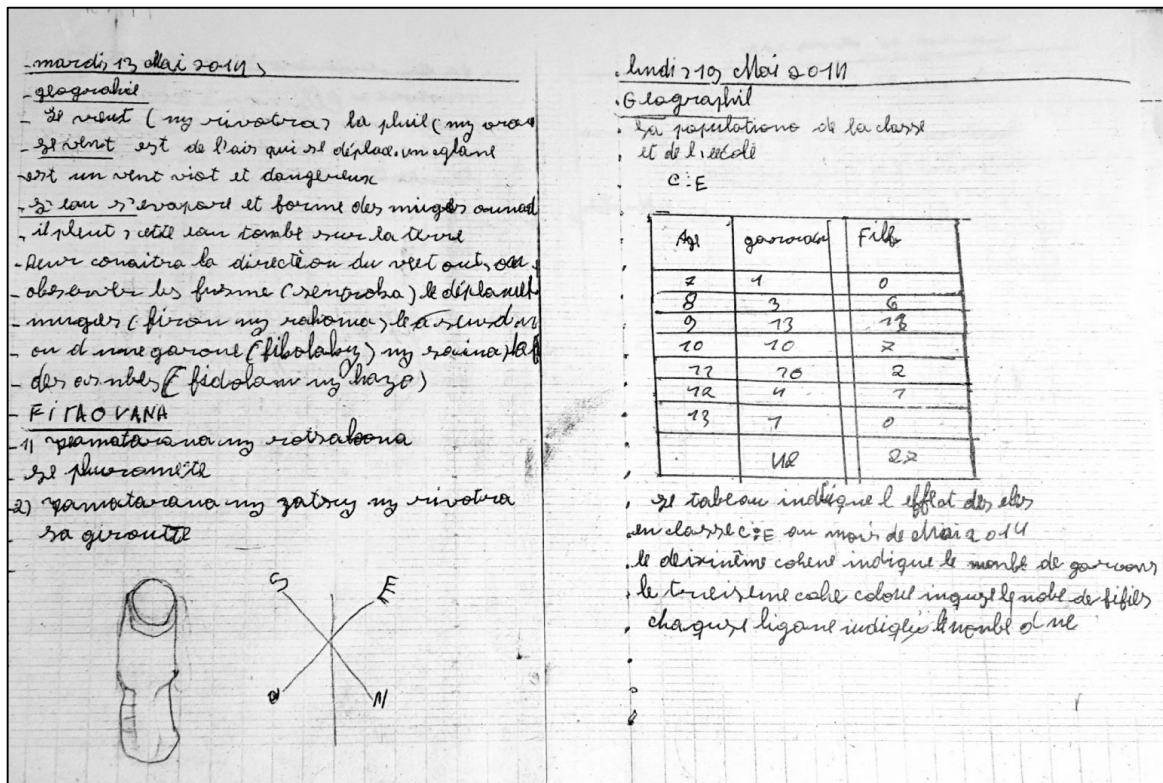 mardi 13 Mai 2014
geographie
Le vent (ny rivotra) la pluie (ny ora
Le vent est de l'air qui se déplace. un cglane
est un vent viot et dangereux
L'eau s'evapore et forme des nuages
il pleut, cette eau tombe sur la terre
conaitra la directeon du
observer les fusme (sentroka) le déplamet
nuages (firon ny rahona) le
ou d'une garoue (fibolaky) ny saina
des arnbes (fidolan ny hazo)
FITAOVANA
1) pamatarana ny rotsakoana
Le pluviomète
2) pamatarana ny zatsy ny rivotra
La girouette
S
E
O
N
lundi 19 Mai 2014
Geographie
La populationo de la classe
et de l, ecole
C:E
Age garcon Fille
7 1 0
8 3 6
9 13
10 10 7
11 10 2
12 4 1
13 1 0
42 27
Le tableau indique l efflat des eles
en classe C:E au mois de Mai 2014
le deixinème colene indique le monbe de garcons
le treisieme colonne le nobe de fifies
chaquze ligane le nonbe d ne